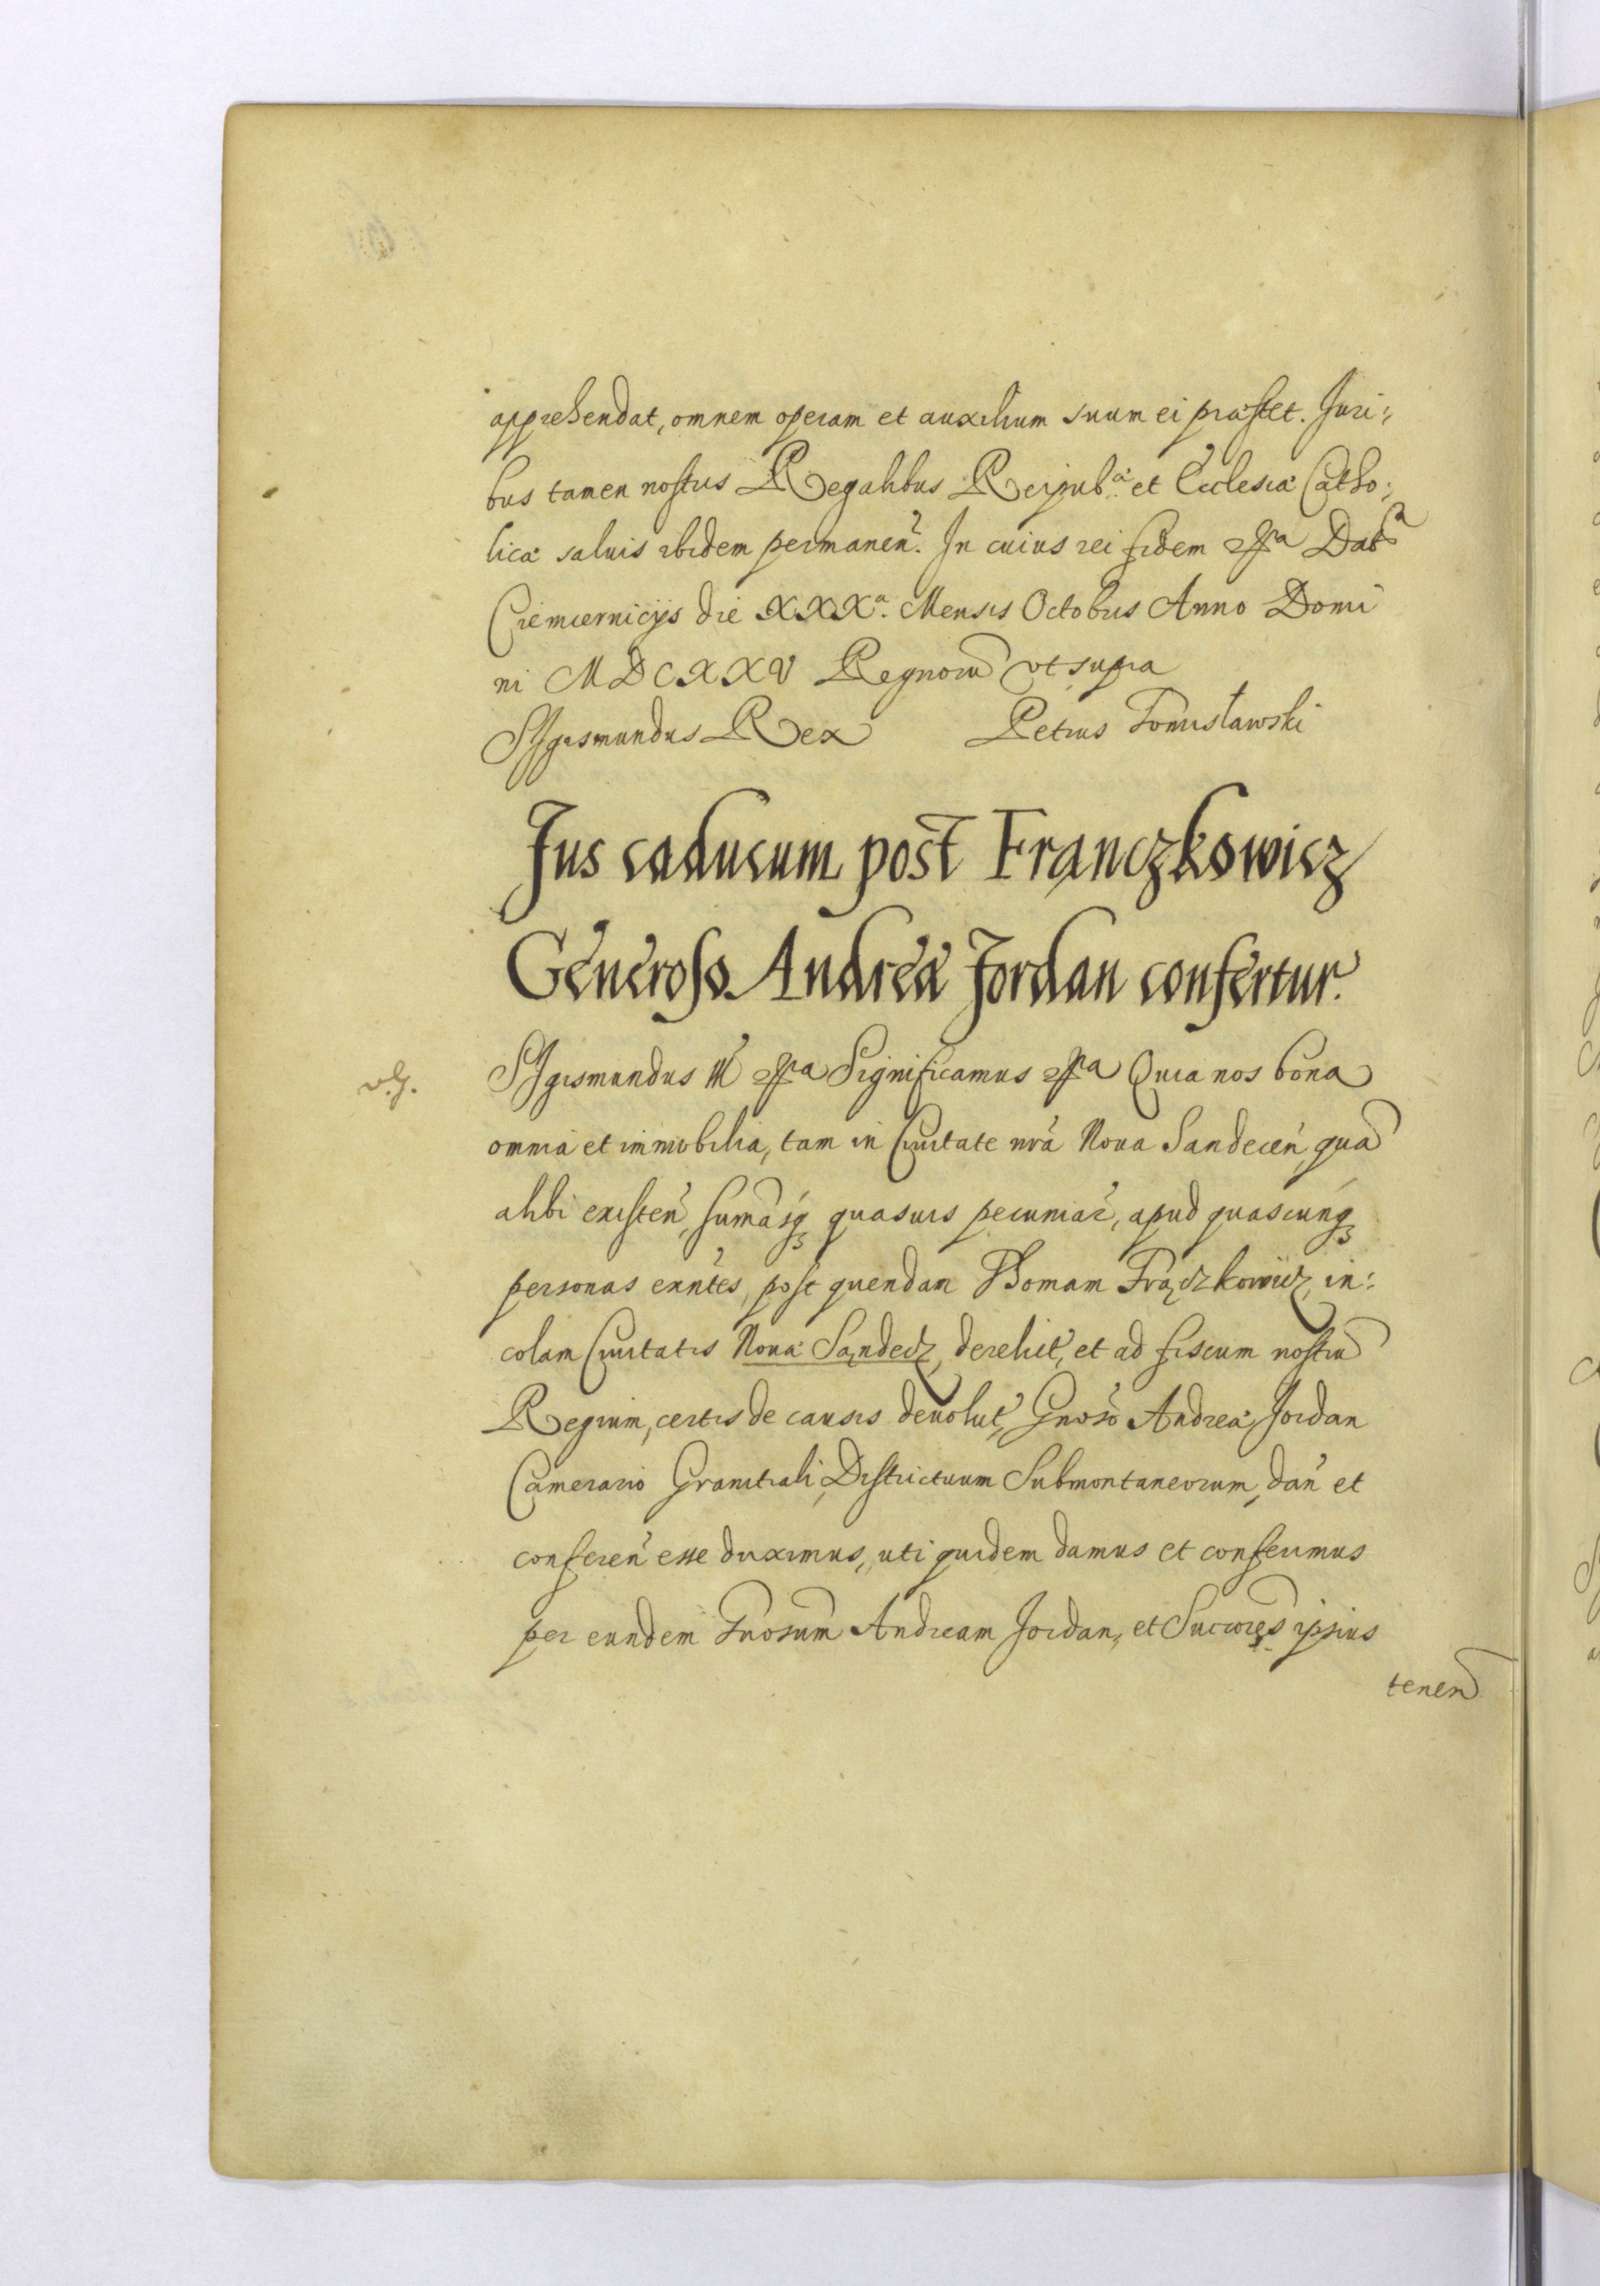 apprehendat, omnem operam et auxilium suum ei præstet. Juri:
bus tamen nostris Regalibus Reipub.æ et Ecclesiæ Catho:
licæ saluis ibidem permanen. In cuius rei fidem Dat
Ciemiernicÿs die XXXa. Mensis Octobris Anno Domi
ni MDCXXV Regnorū vt supra
Sÿgismundus Rex Petrus Tomisławski
Jus caducum post Franczkowicz
Generoso Andreæ Jordan confertur.
Sÿgismundus III Significamus Quia nos bona
omnia et immobilia, tam in Ciuitate nrā Noua Sandecen, quā
alibi existen, sumāsq quasuis pecuniar, apud quascunq
personas exntes, post quendam Thomam Frączkowicz, in:
colam Ciuitatis Nouæ Sandecz, derelict, et ad fiscum nostrū
Regium, certis de causis deuolut, Gnoso Andreæ Jordan
Camerario Granitiali Districtuum Submontaneorum, dan et
conferen esse duximus, uti quidem damus et conferimus
per eundem Gnosum Andream Jordan, et Succores ipsius
tenen